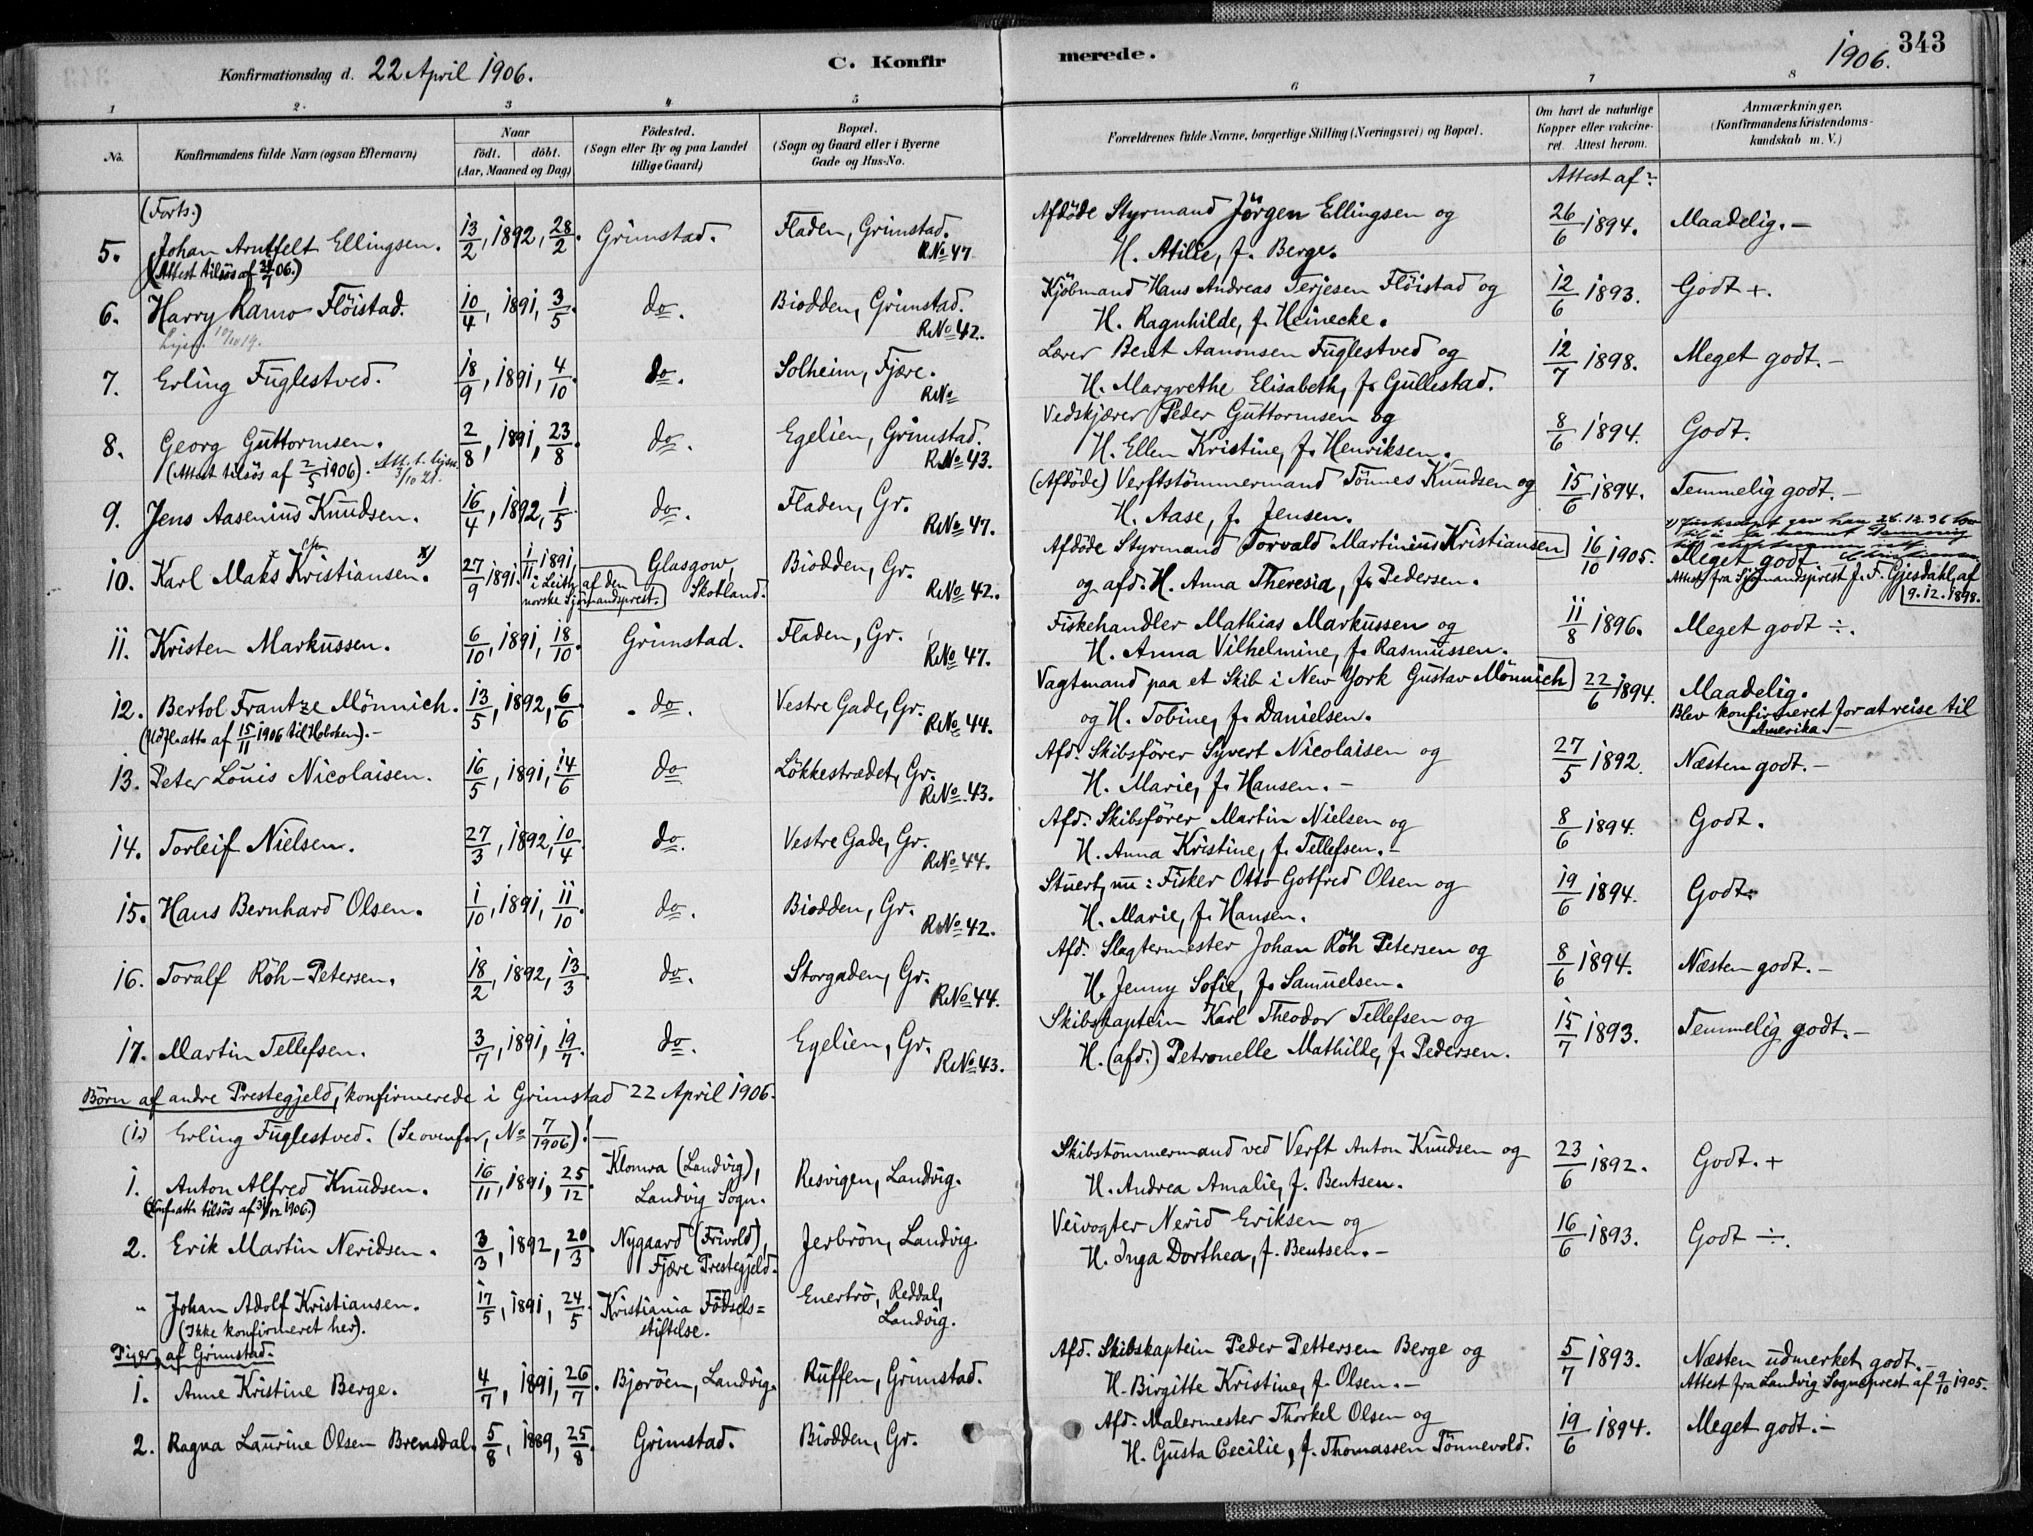 Konfirmationsdag d. 22 April 1906. C. Konfirmerede. 1906. 343
1 2 3 4 5 6 7 8
No. Konfirmandens fulde Navn (ogsaa Efternavn) Naar født. døbt. (Aar, Maaned og Dag) Fødested. (Sogn eller By og paa Landet tillige Gaard) Bopæl. (Sogn og Gaard eller i Byerne Gade og Hus-No. Forældrenes fulde Navne, borgerlige Stilling (Næringsvei) og Bopæl. Om havt de naturlige Kopper eller vakcineret. Attest herom. Anmærkninger. (Konfirmandens Kristendomskundskab m. V.)
Attest af:
(Forts.)
5. Johan Arntfelt Ellingsen. 13/2, 1892, 28/2. Grimstad. Fladen, Grimstad. R.No 47 Afdöde Styrmand Jörgen Ellingsen og 26/6 1894. Maadelig. –
(Attest tilsös af 06.) H. Atilie, f. Berge.
6. Harry Ramo Flöistad. 10/4, 1891, 3/5. do. Biodden, Grimstad. R.No 42. Kjöbmand Hans Andreas Terjesen Flöistad og 12/6 1893. Godt +.
H. Ragnhilde, f. Heinecke.
7. Erling Fuglestved. 18/9, 1891, 4/10. do. Solheim, Fjære. R.No Lærer Bent Aanonsen Fuglestved og 12/7 1898. Meget godt. –
H. Margrethe Elisabeth, f. Gullestad.
8. Georg Guttormsen. 2/8, 1891, 23/8. do. Egelien, Grimstad. R.No 43. Vedskjærer Peder Guttormsen og 8/6 1894. Godt.
(Attest tilsös af 2/5 1906). H. Ellen Kristine, f. Henriksen.
9. Jens Aasenius Knudsen. 16/4, 1892, 1/5. do. Fladen, Gr. R.No 47. (Afdöde) Verftstömmermand Tönnes Knudsen og 15/6 1894. Temmelig godt. –
H. Aase, f. Jensen.
10. Karl Maks Kristiansen. x) 27/9 1891. 1/11 1891, i Leith af den norske Sjömandsprest. Glasgow, Skotland. Biodden, Gr. R.No 42. Afdöde Styrmand Torvald Martinius Kristiansen 16/10 1905. Meget godt.
og afd. H. Anna Theresia, f. Pedersen. Attest fra Sjömandsprest J. F. Gjesdahl, af 9.12.1898.
11. Kristen Markussen. 6/10, 1891, 18/10. Grimstad. Fladen, Gr. R.No 47. Fiskehandler Mathias Markussen og 11/8 1896. Meget godt ÷.
H. Anna Vilhelmine, f. Rasmussen.
12. Bertol Frantze Mönnich. 13/5, 1892, 6/6. do. Vestre Gade, Gr. R.No 44. Vagtmand paa et Skib i New York Gustav Mönnich 22/6 1894. Maadelig.
(Udfl. att. af 15/11 1906 til Hoboken). – og H. Tobine, f. Danielsen. Blev konfirmeret for at reise til Amerika. –
13. Peter Louis Nicolaisen. 16/5, 1891, 14/6 do Lökkestrædet, Gr. R.No 43. Afd. Skibsförer Syvert Nicolaisen og 27/5 1892. Næsten godt. –
H. Marie, f. Hansen. –
14. Torleif Nielsen. 27/3, 1892, 10/4. do. Vestre Gade, Gr. R.No 44. Afd. Skibsförer Martin Nielsen og 8/6 1894. Godt.
H. Anna Kristine, f. Tellefsen. –
15. Hans Bernhard Olsen. 1/10, 1891, 11/10. do. Biodden, Gr. R.No 42. Stuert, nu: Fisker Otto Gotfred Olsen og 19/6 1894. Godt.
H. Marie, f. Hansen.
16. Toralf Röh-Petersen. 18/2, 1892, 13/3. do. Storgaden, Gr. R.No 44. Afd. Slagtermester Johan Röh Petersen og 8/6 1894. Næsten godt. –
H. Jenny Sofie, f. Samuelsen.
17. Martin Tellefsen. 3/7, 1891, 19/7. do. Egelien, Gr. R.No 43. Skibskaptein Karl Theodor Tellefsen og 15/7 1893. Temmelig godt. –
H. (afd.) Petronelle Mathilde, f. Pedersen.
Börn af andre Prestegjeld, konfirmerede i Grimstad 22 April 1906.
(1.) Erling Fuglestved. (Se ovenfor, No 7/1906)! –
1. Anton Alfred Knudsen. 16/11, 1891, 25/12. Klomra (Landvig), Landvig Sogn. Resvigen, Landvig. Skibstömmermand ved Verft Anton Knudsen og 23/6 1892. Godt. +
(Konf. att. tilsös af 31/12 1906.) H. Andrea Amalie, f. Bentsen.
2. Erik Martin Neridsen. 3/3, 1892, 20/3. Nygaard (Frivold), Fjære Prestegjeld. Jerbrön, Landvig Veivogter Nerid Eriksen og 16/6 1893. Godt ÷.
H. Inga Dorthea, f. Bentsen. –
" Johan Adolf Kristiansen. 17/5, 1891, 24/5. Kristiania Födselsstiftelse. Enertrö, Reddal, Landvig.
(Ikke konfirmeret her).
Piger, af Grimstad.
1. Anne Kristine Berge. 4/7, 1891, 26/7. Bjoröen, Landvig. Ruffen, Grimstad. Afd. Skibskaptein Peder Pettersen Berge og 5/7 1893. Næsten udmerket godt. –
H. Birgitte Kristine, f. Olsen. – Attest fra Landvig Sogneprest af 9/10 1905.
2. Ragna Laurine Olsen Brensdal. 5/8, 1889, 25/8. Grimstad. Biodden, Gr. Afd. Malermester Thorkel Olsen og 19/6 1894. Meget godt. ÷
H. Gusta Cecilie, f. Thomassen Tönnevold.